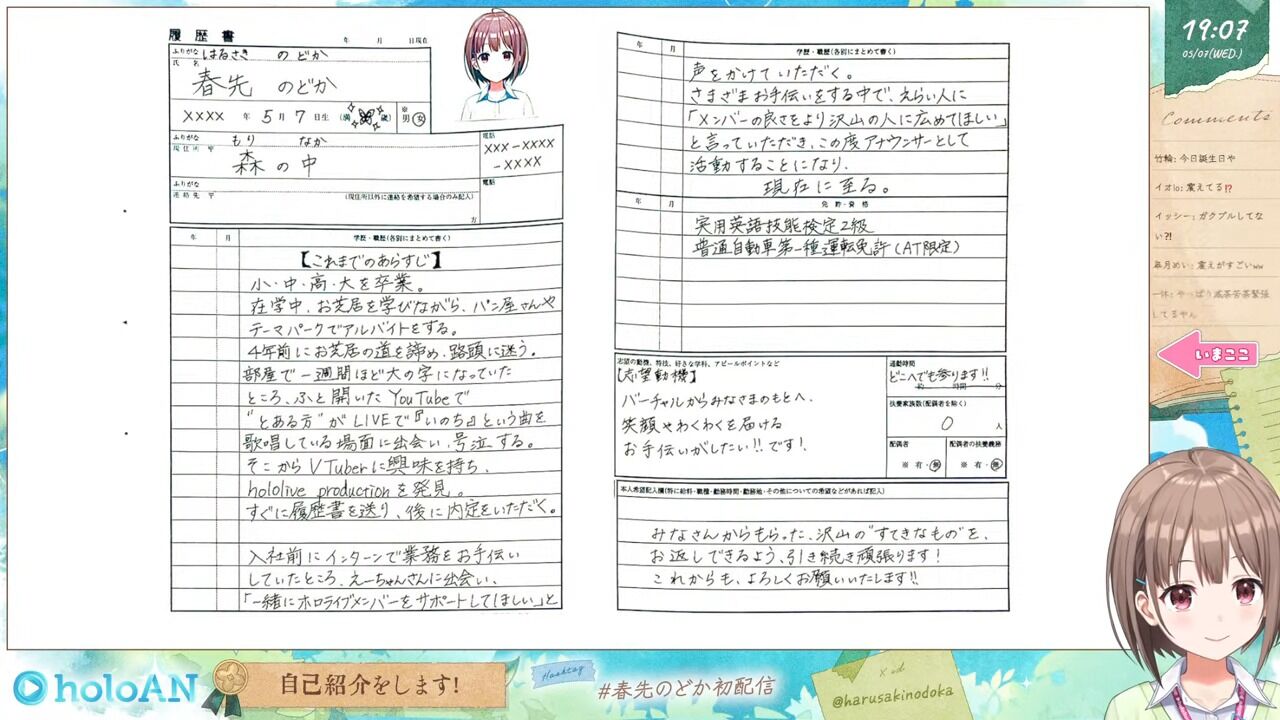 履歴書
年 月 日現在
ふりがな はるさき のどか
氏名
春先 のどか
XXXX 年 5 月 7 日生 (満 歳) ※ 男・女
ふりがな もり なか
現住所 〒
森の中
電話
XXX-XXXX
-XXXX
ふりがな
連絡先 〒 (現住所以外に連絡を希望する場合のみ記入)
方
電話
年 月 学歴・職歴(各別にまとめて書く)
【これまでのあらすじ】
小・中・高・大を卒業。
在学中、お芝居を学びながら、パン屋さんや
テーマパークでアルバイトをする。
4年前にお芝居の道を諦め、路頭に迷う。
部屋で一週間ほど大の字になっていた
ところ、ふと開いたYouTubeで
"とある方"がLIVEで『いのち』という曲を
歌唱している場面に出会い、号泣する。
そこからVTuberに興味を持ち、
hololive productionを発見。
すぐに履歴書を送り、後に内定をいただく。
入社前にインターンで業務をお手伝い
していたところ、えーちゃんさんに出会い、
「一緒にホロライブメンバーをサポートしてほしい」と
年 月 学歴・職歴(各別にまとめて書く)
声をかけていただく。
さまざまお手伝いをする中で、えらい人に
「メンバーの良さをより沢山の人に広めてほしい」
と言っていただき、この度アナウンサーとして
活動することになり、
現在に至る。
年 月 免許・資格
実用英語技能検定2級
普通自動車第一種運転免許(AT限定)
志望の動機、特技、好きな学科、アピールポイントなど
【志望動機】
バーチャルからみなさまのもとへ、
笑顔やわくわくを届ける
お手伝いがしたい!!です!
通勤時間
どこへでも参ります!!
約 時間 分
扶養家族数(配偶者を除く)
0 人
配偶者
※ 有・無
配偶者の扶養義務
※ 有・無
本人希望記入欄(特に給料・職種・勤務時間・勤務地・その他についての希望などがあれば記入)
みなさんからもらった、沢山の"すてきなもの"を、
お返しできるよう、引き続き頑張ります!
これからも、よろしくお願いいたします!!
19:07
5/07(WED.)
Comments
竹輪: 今日誕生日や
イオlo: 震えてる⁉
イッシー: ガクブルしてな
い?!
毎月めい: 震えがすごいww
一休: やっぱり滅茶苦茶緊張
してるやん
いまここ
holoAN
自己紹介をします!
Hashtag
#春先のどか初配信
X id
@harusakinodoka